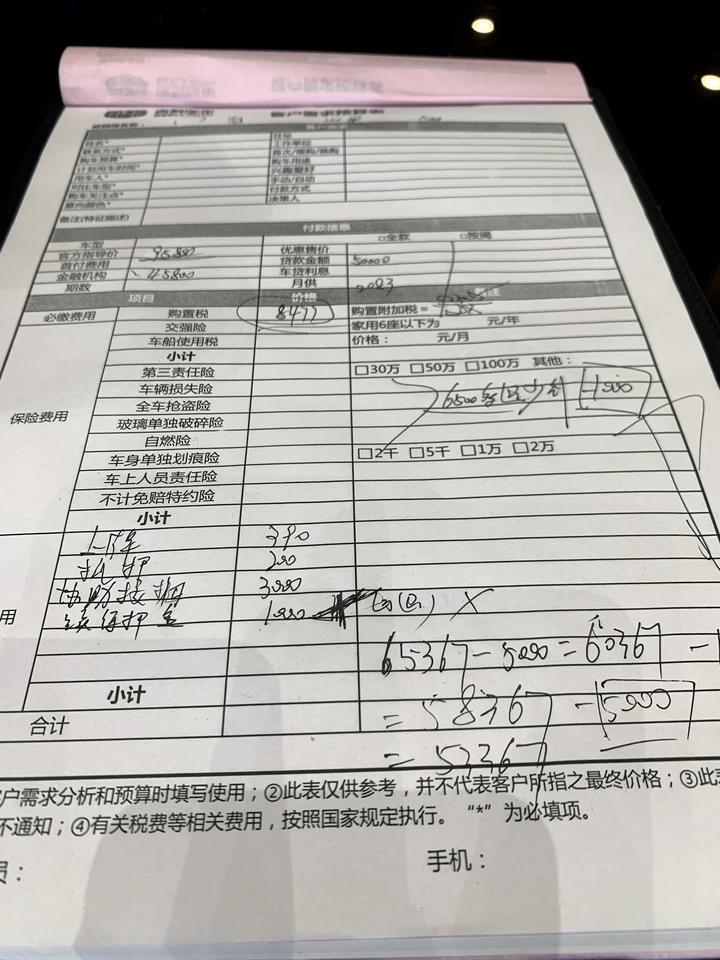 姓名*
联系方式*
购车预算*
计划用车时间*
用车人*
对比车型*
购车关注点*
意向颜色*
备注(特征描述)
住址
工作单位
首次/增购/换购
购车用途
兴趣爱好
手动/自动
付款方式
决策人
付款信息
□全款 □按揭
车型 优惠售价
官方指导价 95800 贷款金额 50000
首付费用 45800 车贷利息
金融机构 月供 2083
期数
项目 价格 备注
必缴费用 购置税 8477 购置附加税=
交强险 家用6座以下为 元/年
车船使用税 价格: 元/月
小计
保险费用
第三责任险 □30万 □50万 □100万 其他:
车辆损失险 6500 1000
全车抢盗险
玻璃单独破碎险
自燃险
车身单独划痕险 □2千 □5千 □1万 □2万
车上人员责任险
不计免赔特约险
小计
用
390
抵押 200
协助接捆 3000
续保押金 1000 X
65367-5000=60367-1
小计
=58367-5000
合计
=53367
户需求分析和预算时填写使用;②此表仅供参考,并不代表客户所指之最终价格;③此表
不通知;④有关税费等相关费用,按照国家规定执行。“*”为必填项。
员:
手机: